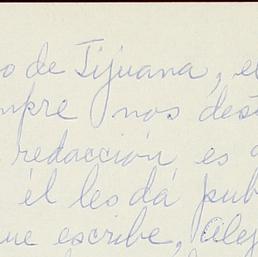 o de Tijuana, e
mpre nos dest
redacción es
él les dá pub
ue escribe, Alej